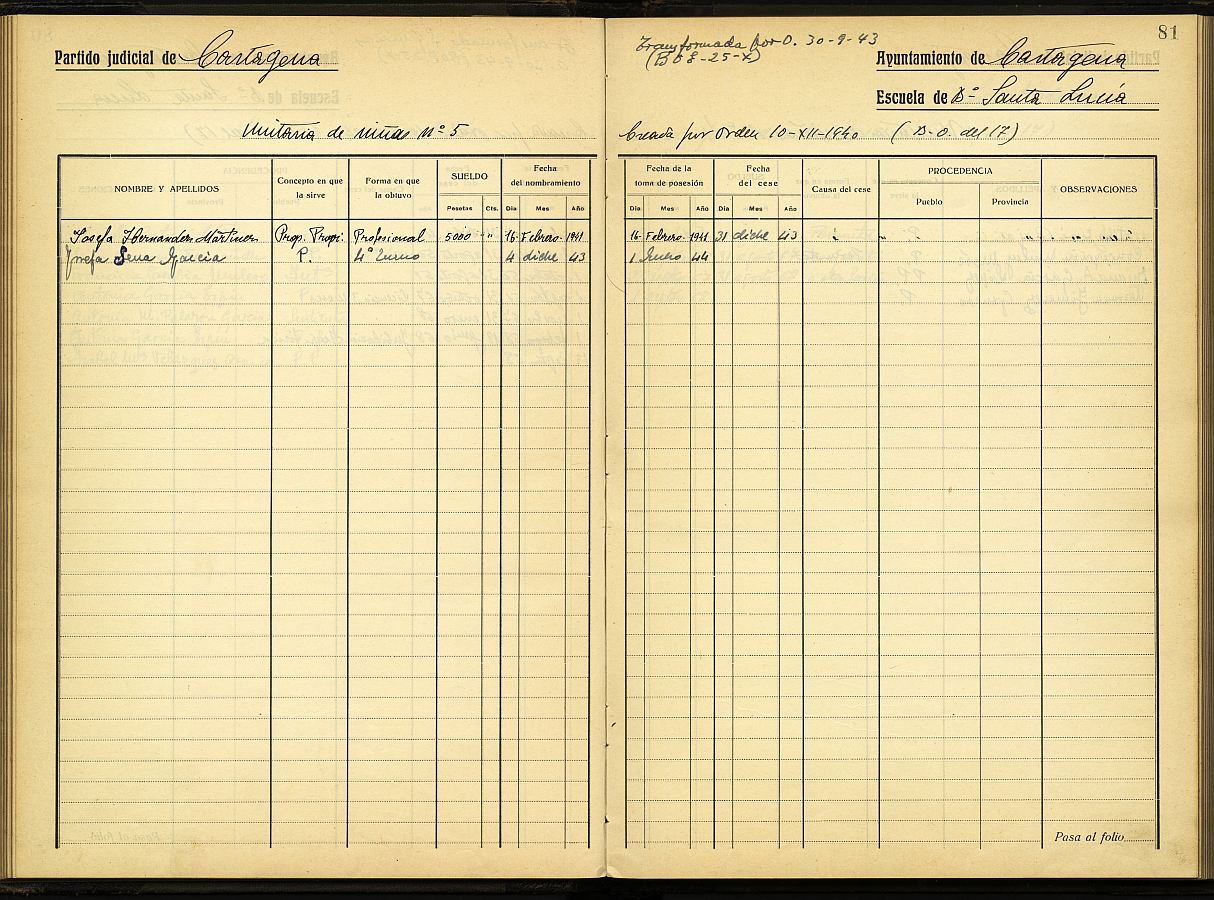 81
Partido judicial de Cartagena
Transformada por O. 30-9-43
(BOE-25-X)
Ayuntamiento de Cartagena
Escuela de Bº Santa Lucía
Unitaria de niñas Nº 5
Creada por Orden 10-XII-1940 (B.O. del 17)
NOMBRE Y APELLIDOS
Concepto en que la sirve
Forma en que la obtuvo
SUELDO
Pesetas Cts.
Fecha del nombramiento
Día Mes Año
Fecha de la toma de posesión
Día Mes Año
Fecha del cese
Día Mes Año
Causa del cese
PROCEDENCIA
Pueblo Provincia
OBSERVACIONES
Josefa Hernandez Martinez Prop. Propi. Profesional 5000 " 16 Febrero 1941 16 Febrero 1941 31 dicbe 43 " " " " " "
Josefa García P. 4º turno 4 dicbe 43 1 Enero 44
Pasa al folio